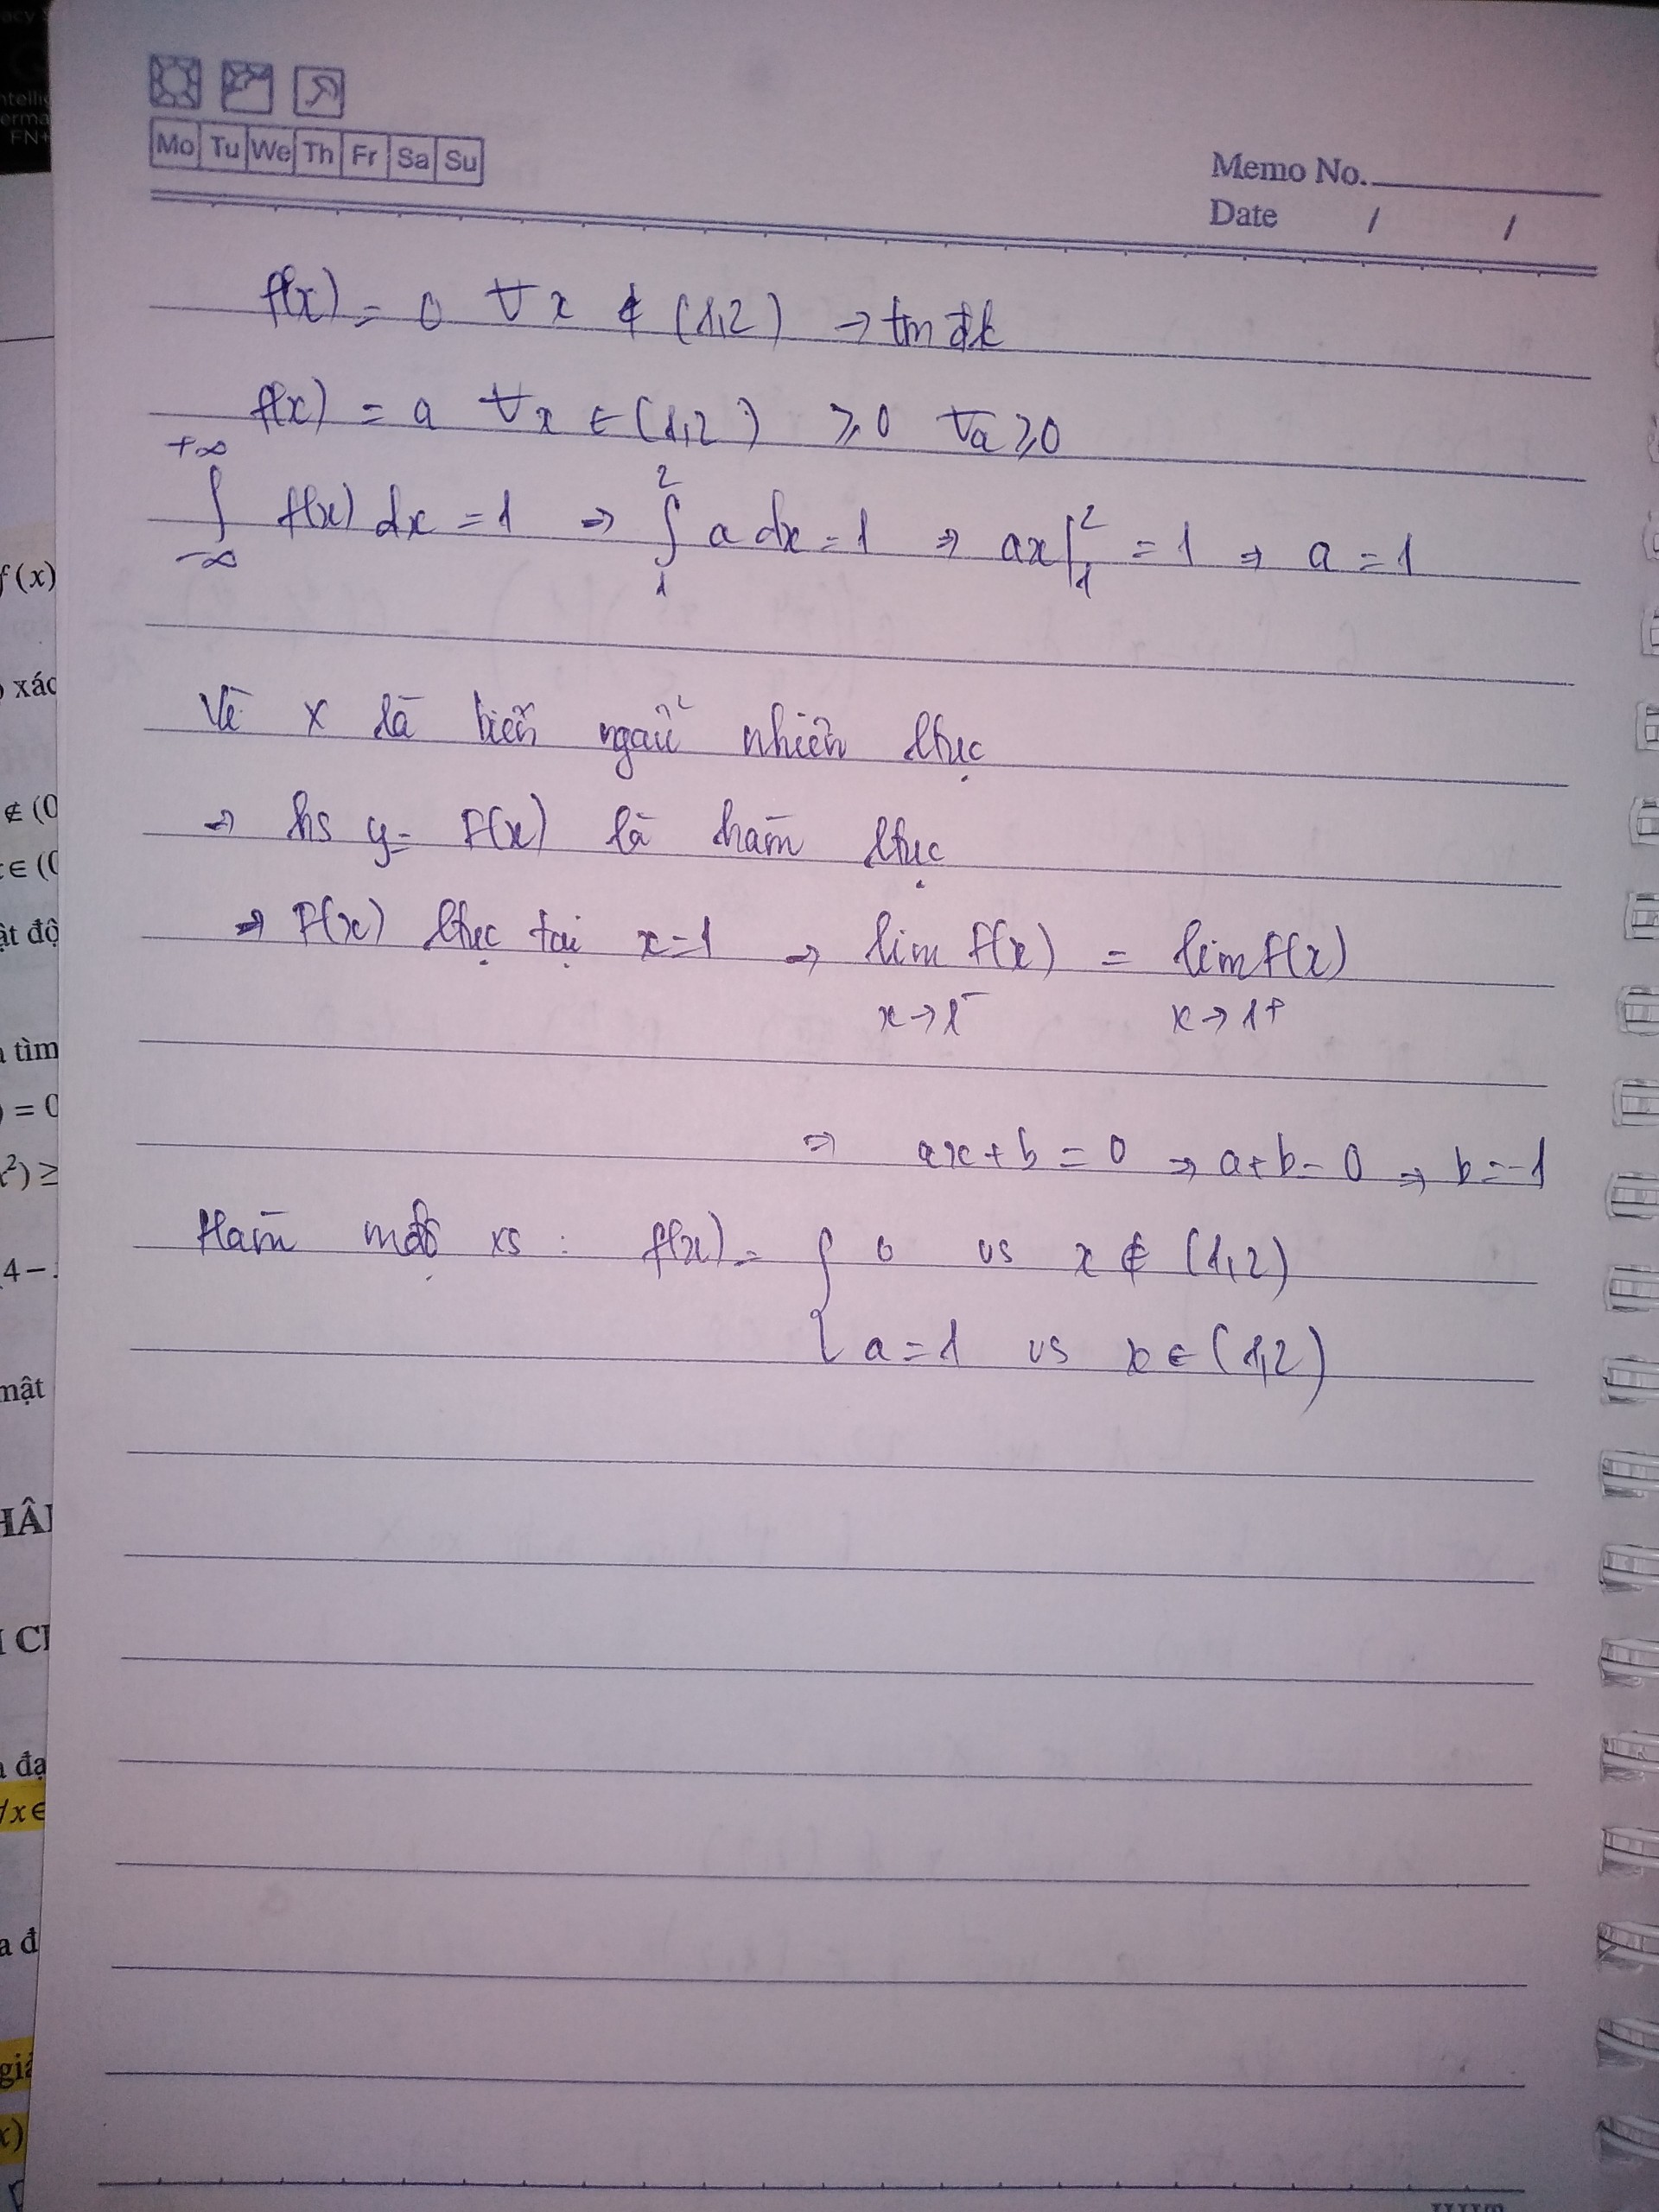 Mo Tu We Th Fr Sa Su
Memo No.
Date / /
f(x) = 0 ∀x ∉ (1,2) → tm đk
f(x) = a ∀x ∈ (1,2) ≥ 0 ∀a ≥ 0
∫_{-∞}^{+∞} f(x) dx = 1 ⇒ ∫_1^2 a dx = 1 ⇒ ax|_1^2 = 1 ⇒ a = 1
Vì X là biến ngẫu nhiên ltục
⇒ hs y = F(x) là hàm ltục
⇒ F(x) ltục tại x=1 ⇒ lim F(x) = lim F(x)
x→1⁻ x→1⁺
⇒ ax+b = 0 ⇒ a+b=0 ⇒ b=-1
Hàm mđộ xs : f(x) = { 0 vs x ∉ (1,2)
a=1 vs x ∈ (1,2)
f(x)
xác
∉ (0
∈ (0
ật độ
tìm
) = 0
x²) ≥
4 –
mật
đạ
∀x∈
a đ
giá
x)